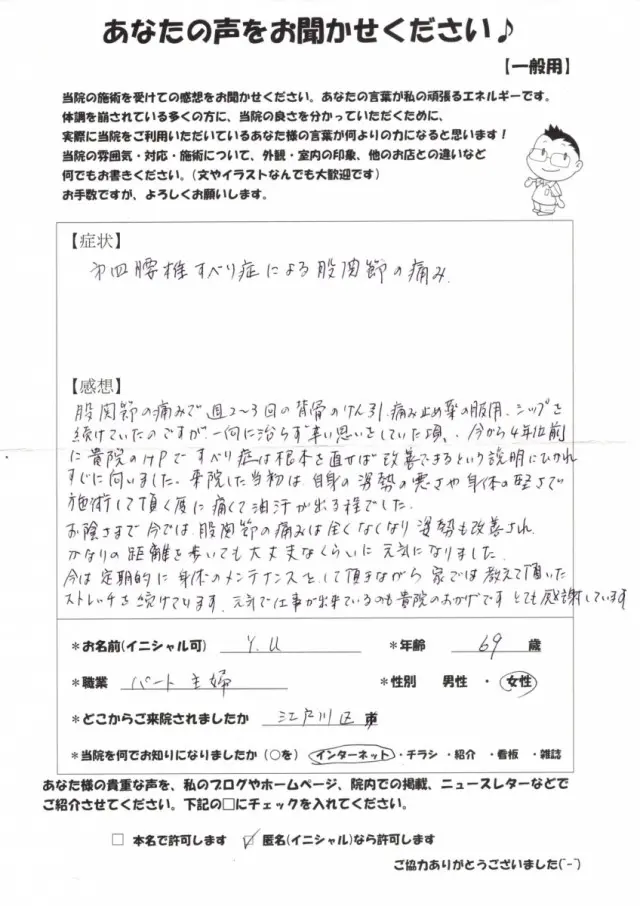 あなたの声をお聞かせください♪
【一般用】
当院の施術を受けての感想をお聞かせください。あなたの言葉が私の頑張るエネルギーです。
体調を崩されている多くの方に、当院の良さを分かっていただくために、
実際に当院をご利用いただいているあなた様の言葉が何よりの力になると思います!
当院の雰囲気・対応・施術について、外観・室内の印象、他のお店との違いなど
何でもお書きください。(文やイラストなんでも大歓迎です)
お手数ですが、よろしくお願いします。
【症状】
才四腰椎すべり症による股関節の痛み.
【感想】
股関節の痛みで週2~3回の背骨のけん引、痛み止め薬の服用、シップを
続けていたのですが、一向に治らず辛い思いをしていた頃、今から4年位前
に貴院のHPですべり症は根本を直せば改善できるという説明にひかれ
すぐに向いました。来院した当初は自身の姿勢の悪さや身体の堅さで
施術して頂く度に痛くて油汗が出る程でした。
お陰さまで今では、股関節の痛みは全くなくなり姿勢も改善され
かなりの距離を歩いても大丈夫なくらいに元気になりました。
今は定期的に身体のメンテナンスをして頂きながら家では教えて頂いた
ストレッチを続けています。元気で仕事が出来ているのも貴院のおかげです とても感謝しています
*お名前(イニシャル可) Y.U *年齢 69 歳
*職業 パート主婦 *性別 男性 ・ 女性
*どこからご来院されましたか 江戸川区 市
*当院を何でお知りになりましたか(○を) インターネット ・チラシ ・紹介 ・看板 ・雑誌
あなた様の貴重な声を、私のブログやホームページ、院内での掲載、ニュースレターなどで
ご紹介させてください。下記の□にチェックを入れてください。
□ 本名で許可します ☑ 匿名(イニシャル)なら許可します
ご協力ありがとうございました(^-^)